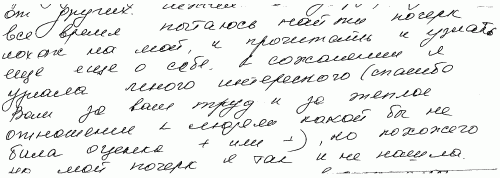 от других.
все время пытаюсь найти почерк
похож на мой, и прочитать и узнать
еще еще о себе. К сожалению я
узнала много интересного (спасибо
Вам за ваш труд и за теплое
отношение к людям какой бы не
была оценка + или -), но похожего
на мой почерк я так и не нашла.